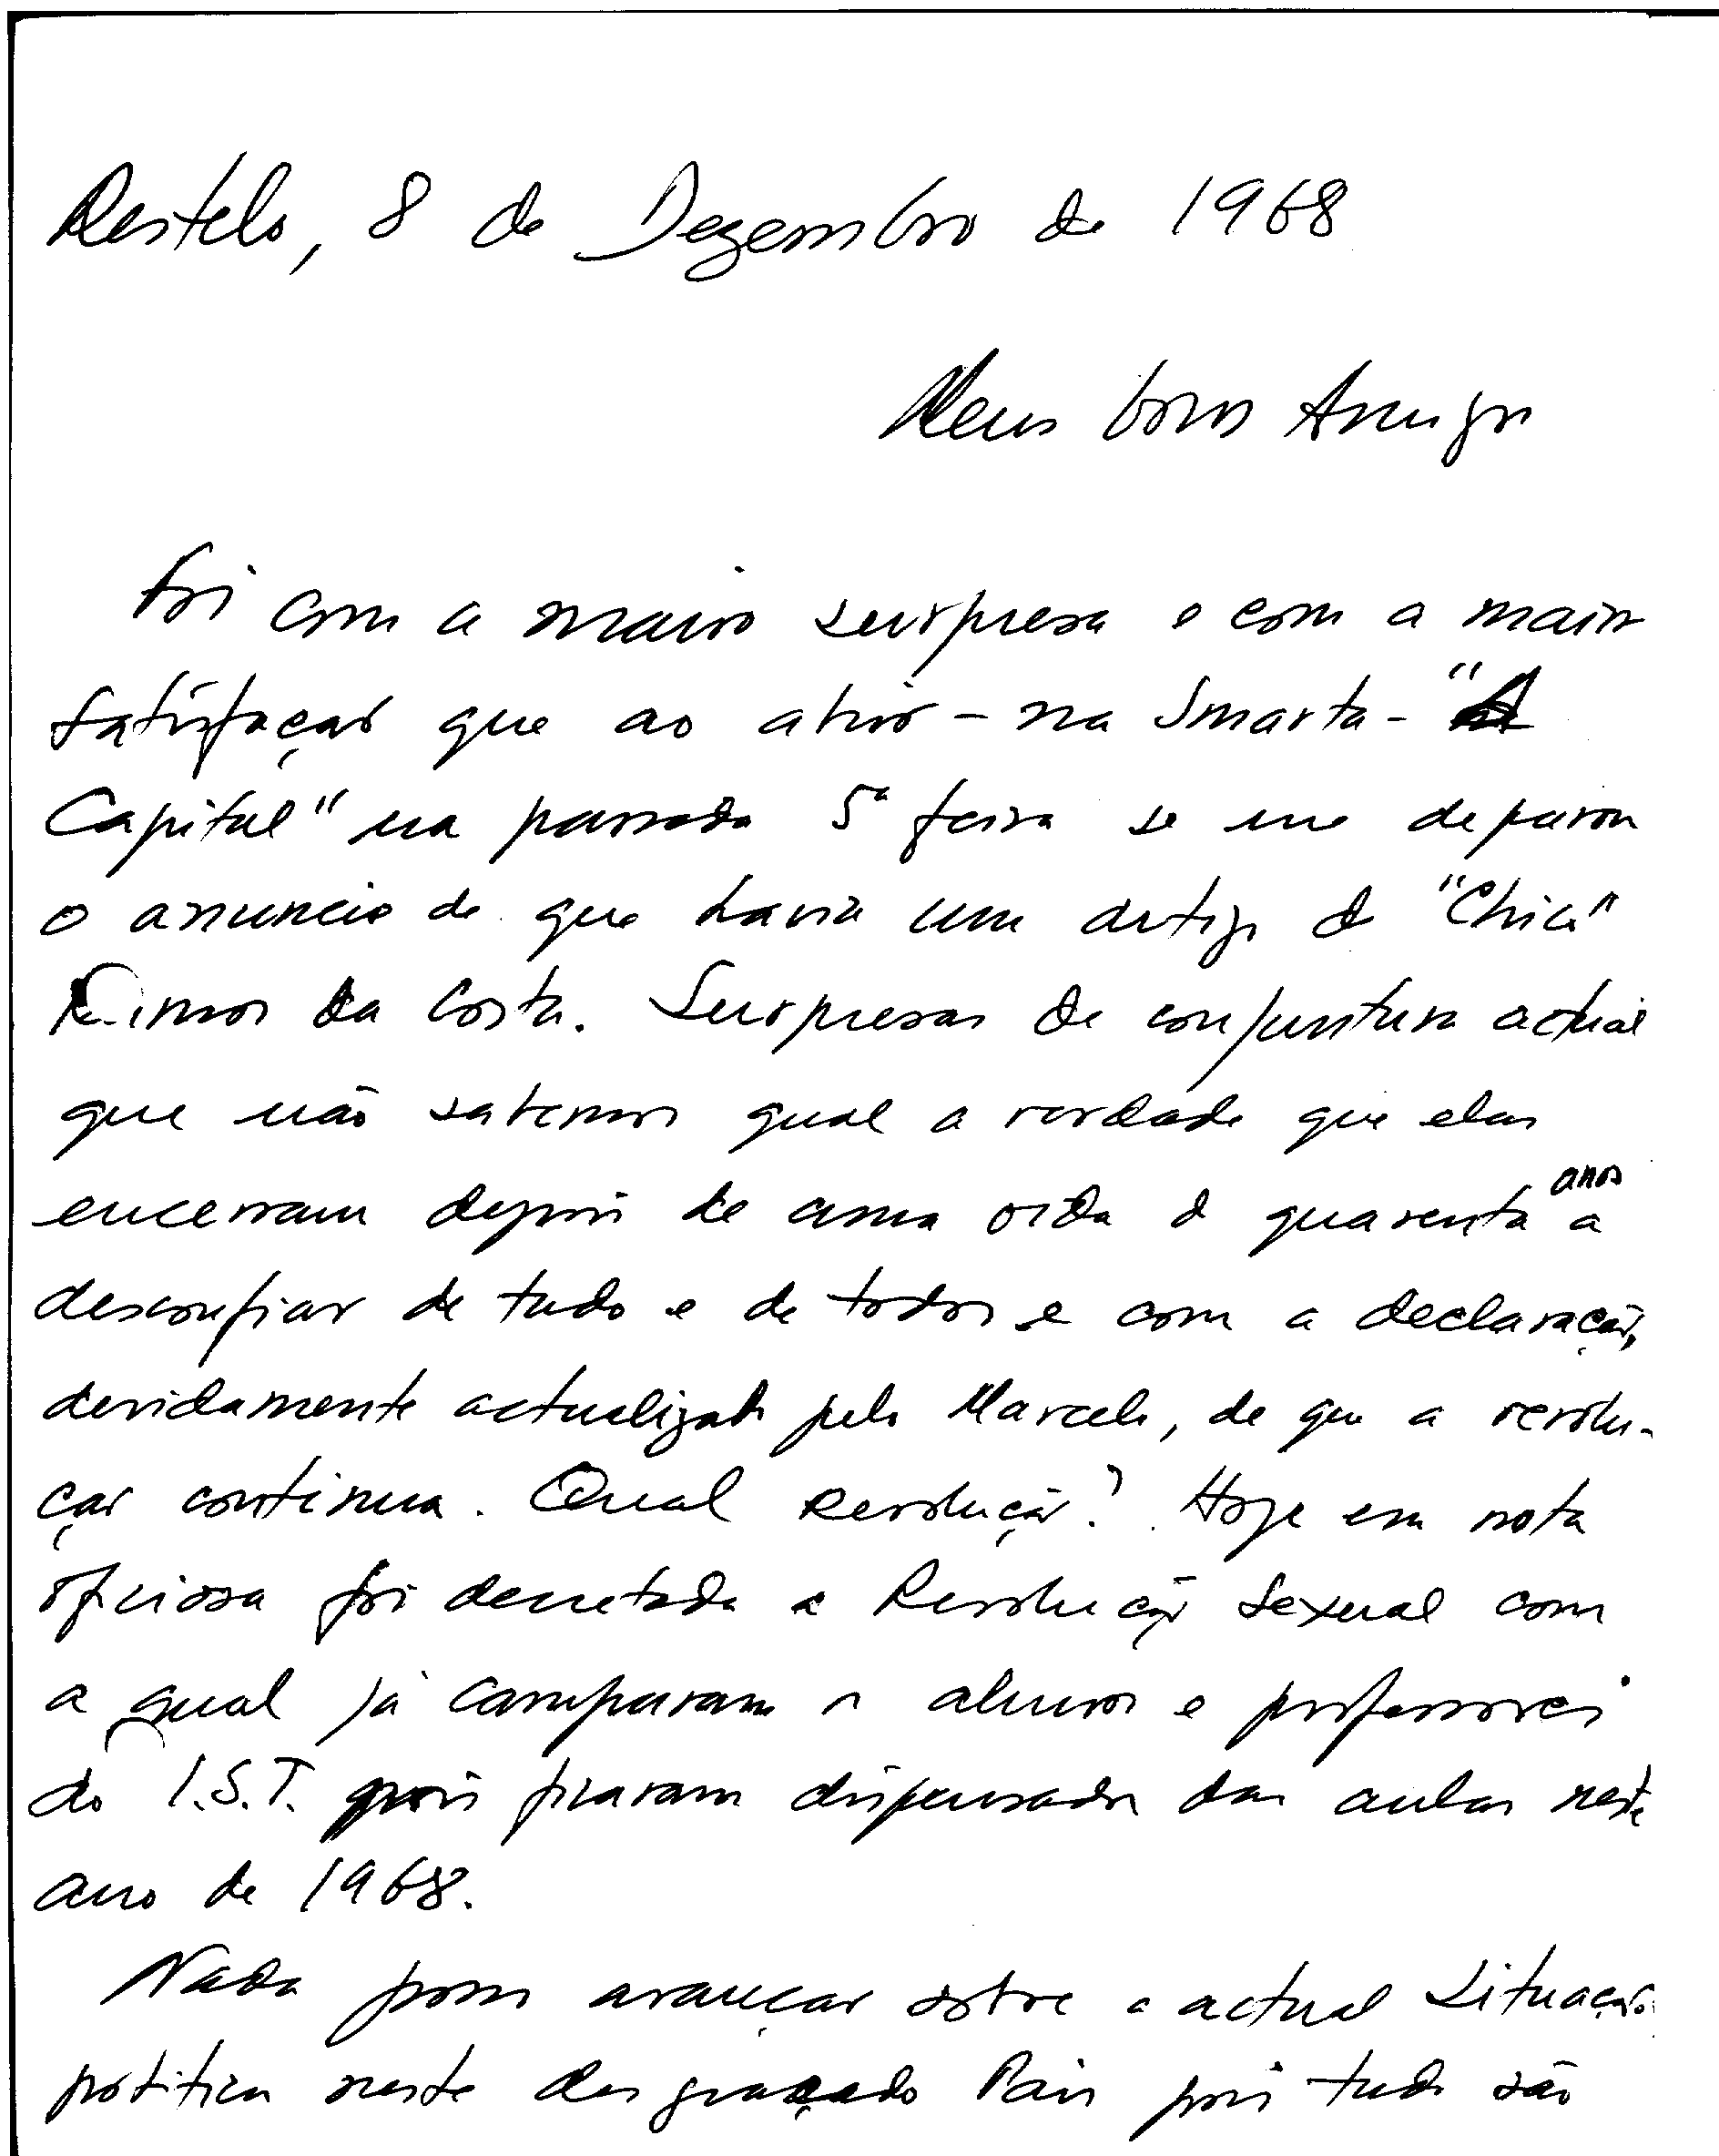 Restelo, 8 de Dezembro de 1968
Meus bons Amigos
Foi com a maior surpresa e com a maior
satisfação que ao abrir - na Smarta - "A
Capital" na passada 5ª feira se me deparou
o anuncio de que havia um artigo do "Chico"
Ramos da Costa. Surpresas de conjuntura actual
que não sabemos qual a verdade que elas
encerram depois de uma vida de quarenta anos a
desconfiar de tudo e de todos e com a declaração,
devidamente actualizada pelo Marcelo, de que a revolu-
ção continua. Qual Revolução? Hoje em nota
oficiosa foi decretada a Revolução Sexual com
a qual já camparam os alunos e professores
do I.S.T. pois ficaram dispensados das aulas neste
ano de 1968.
Nada posso avançar sobre a actual situação
politica neste desgraçado Pais pois tudo são